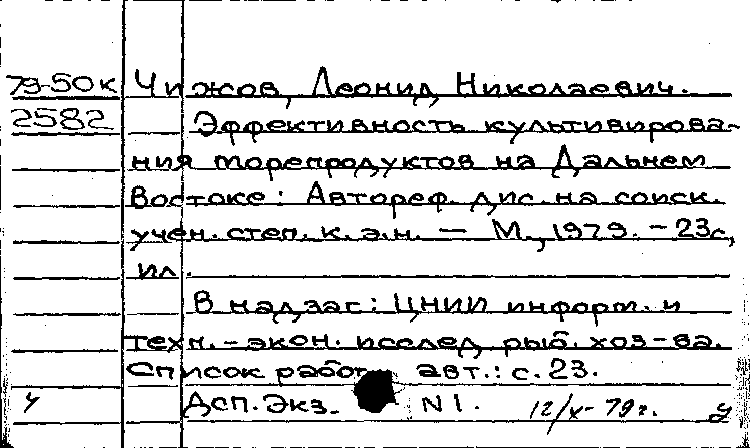 79-50к Чижов, Леонид Николаевич.
2582 Эффективность культивирова-
ния морепродуктов на Дальнем
Востоке: Автореф. дис. на соиск.
учен. степ. к. э. н. — М., 1979. - 23с,
ил.
В надзаг: ЦНИИ информ. и
техн.-экон. исслед. рыб. хоз-ва.
Список работ авт.: с. 23.
Дсп. Экз. N1. 12/X-79г.